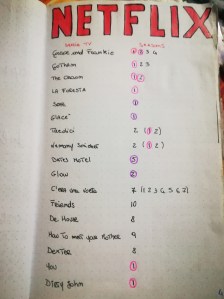 NETFLIX
SERIE TV SEASONS
Grace and Frankie 1 2 3 4
Gotham 1 2 3
The Crown 1 2
LA FORESTA 1
1
Glacé 1
2 (1 2)
2 (1 2)
Bates Motel 5
Glow 2
C'era una volta 7 (1 2 3 4 5 6 7)
Friends 10
Dr. House 8
How to met your Mother 9
Dexter 8
YOU 1
Dirty John 1